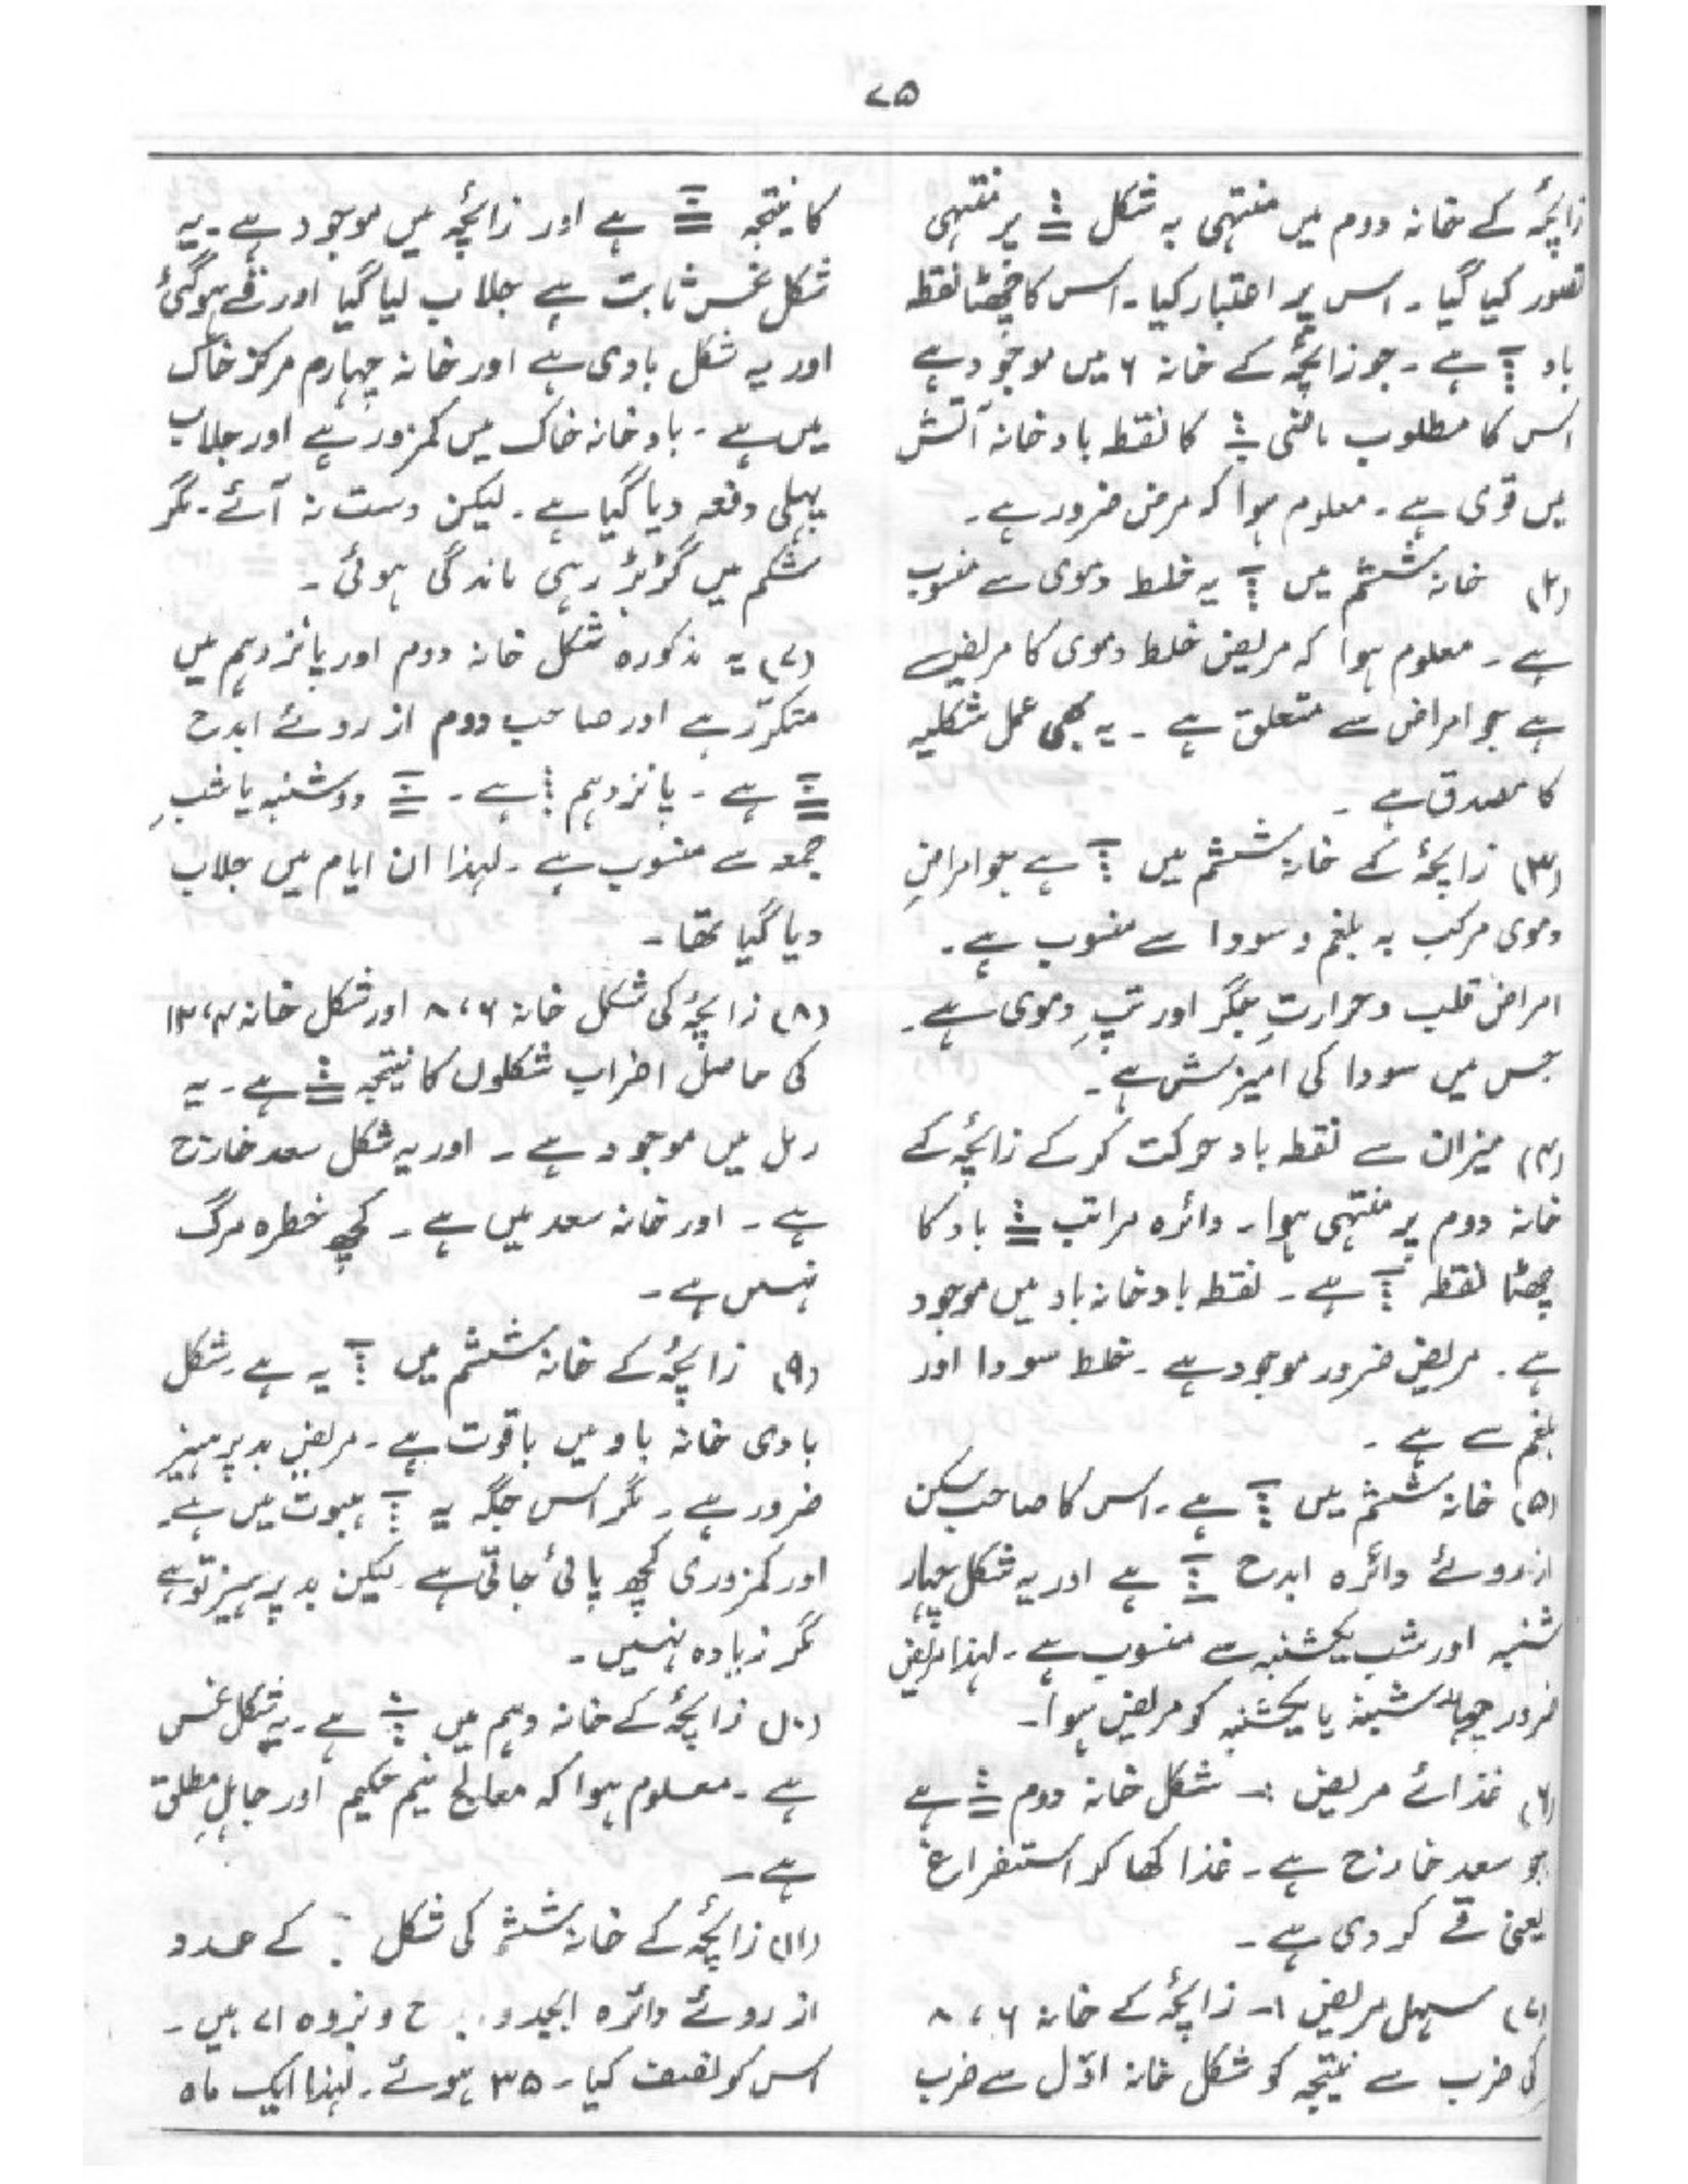 ۷۵
زائچہ کے خانہ دوم میں منتہی بہ شکل پر منتہی
تصور کیا گیا۔ اس پر اعتبار کیا۔ اس کا چھٹا نقطہ
باد ہے۔ جو زائچہ کے خانہ ۶ میں موجود ہے
اس کا مطلوب کا نقطہ باد خانہ آتش
میں قوی ہے۔ معلوم ہوا کہ مرض ضرور ہے۔
(۲) خانہ ششم میں یہ خلط دموی سے منسوب
ہے۔ معلوم ہوا کہ مریض خلط دموی کا مریض ہے
ہے جو امراض سے متعلق ہے۔ یہ بھی عمل شکلیہ
کا مصدق ہے۔
(۳) زائچہ کے خانہ ششم میں ہے جو امراضِ
دموی مرکب بہ بلغم و سودا سے منسوب ہے۔
امراض قلب و حرارتِ جگر اور تپِ دموی ہے۔
جس میں سودا کی امیزش ہے۔
(۴) میزان سے نقطہ باد حرکت کر کے زائچہ کے
خانہ دوم پر منتہی ہوا۔ دائرہ مراتب باد کا
چھٹا نقطہ ہے۔ نقطہ باد خانہ باد میں موجود
ہے۔ مریض ضرور موجود ہے۔ خلط سودا اور
بلغم سے ہے۔
(۵) خانہ ششم میں ہے۔ اس کا صاحب سکن
از روئے دائرہ ابدح ہے اور یہ شکل چہار
شنبہ اور شب یکشنبہ سے منسوب ہے۔ لہذا مریض
ضرور چہار شنبہ یا یکشنبہ کو مریض ہوا۔
(۶) غذائے مریض :۔ شکل خانہ دوم ہے
جو سعد خارج ہے۔ غذا کھا کر استفراغ
یعنی قے کر دی ہے۔
(۷) مسہل مریض :۔ زائچہ کے خانہ ۶، ۸
کی ضرب سے نتیجہ کو شکل خانہ اوّل سے ضرب
کا نتیجہ ہے اور زائچہ میں موجود ہے۔ یہ
شکل نحس ثابت ہے جلاب لیا گیا اور قے ہو گئی
اور یہ شکل بادی ہے اور خانہ چہارم مرکز خاک
میں ہے۔ باد خانہ خاک میں کمزور ہے اور جلاب
پہلی دفعہ دیا گیا ہے۔ لیکن دست نہ آئے۔ مگر
شکم میں گڑبڑ رہی ماندگی ہوئی۔
(۷) یہ مذکورہ شکل خانہ دوم اور پانزدہم میں
متکرّر ہے اور صاحب دوم از روئے ابدح
ہے۔ پانزدہم ہے۔ دوشنبہ یا شبِ
جمعہ سے منسوب ہے۔ لہذا ان ایام میں جلاب
دیا گیا تھا۔
(۸) زائچہ کی شکل خانہ ۶، ۸ اور شکل خانہ ۴، ۱۳
کی حاصل اضراب شکلوں کا نتیجہ ہے۔ یہ
رمل میں موجود ہے۔ اور یہ شکل سعد خارج
ہے۔ اور خانہ سعد میں ہے۔ کچھ خطرہ مرگ
نہیں ہے۔
(۹) زائچہ کے خانہ ششم میں یہ ہے۔ شکل
بادی خانہ باد میں باقوت ہے۔ مریض بدپرہیز
ضرور ہے۔ مگر اس جگہ یہ ہبوت میں ہے۔
اور کمزوری کچھ پائی جاتی ہے۔ لیکن بدپرہیز تو ہے
مگر زیادہ نہیں۔
(۱۰) زائچہ کے خانہ دہم میں ہے۔ یہ شکل نحس
ہے۔ معلوم ہوا کہ معالج نیم حکیم اور جاہلِ مطلق
ہے۔
(۱۱) زائچہ کے خانہ ششم کی شکل کے عدد
از روئے دائرہ ابجد و ح و بزوہ ۷۱ ہیں۔
اس کو نصف کیا۔ ۳۵ ہوئے۔ لہذا ایک ماہ